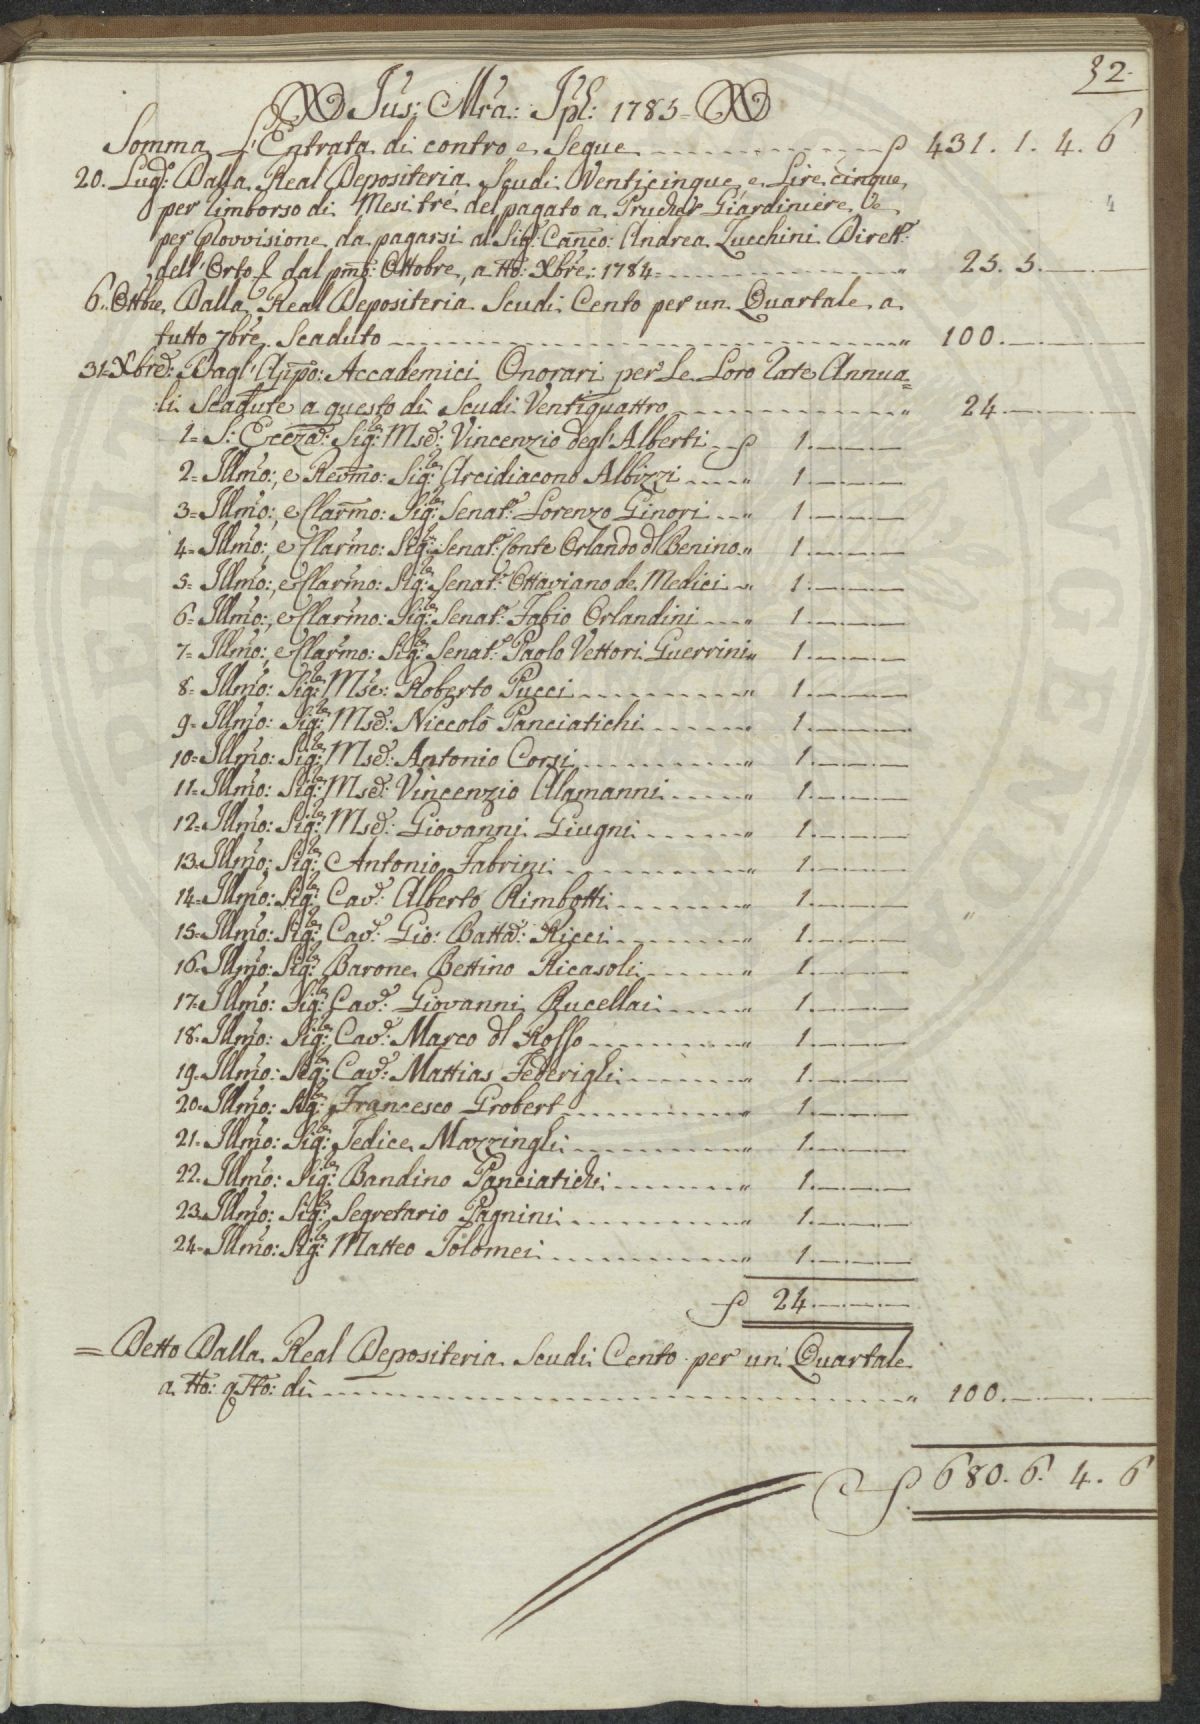 32.
Jus: Mra: Jpl: 1785=
Somma L'Entrata di contro e Segue 431. 1. 4. 6
20. Lug: Dalla Real Depositeria Scudi Venticinque, e Lire cinque,
per rimborso di Mesi tre del pagato a Prucher Giardiniere, e
per provvisione da pagarsi al Sig: Canco: Andrea Zucchini Dirett:
dell'Orto dal pmo: Ottobre, a tto: Xbre: 1784 " 25. 5.
6. Ottbre Dalla Real Depositeria Scudi Cento per un Quartale a
tutto 7bre Scaduto " 100.
31=Xbre: Dagl' Accademici Onorari per Le Loro Rate Annua=
:li Scadute a questo dì Scudi Ventiquattro " 24
1= S: Ecceza: Sig: Msd: Vincenzio degl'Alberti 1.
2= Illmo:, e Revmo: Sig: Arcidiacono Albizzi " 1.
3= Illmo:, e Clarmo: Sig: Senat: Lorenzo Ginori " 1.
4= Illmo:, e Clarmo: Sig: Senat: Conte Orlando dl Benino " 1.
5= Illmo:, e Clarmo: Sig: Senat: Ottaviano de Medici " 1.
6= Illmo:, e Clarmo: Sig: Senat: Fabio Orlandini " 1.
7= Illmo:, e Clarmo: Sig: Senat: Paolo Vettori Guerrini " 1.
8= Illmo: Sig: Mse: Roberto Pucci " 1.
9= Illmo: Sig: Msd: Niccolò Panciatichi " 1.
10= Illmo: Sig: Msd: Antonio Corsi " 1.
11= Illmo: Sig: Msd: Vincenzio Alamanni " 1.
12= Illmo: Sig: Msd: Giovanni Giugni " 1.
13= Illmo: Sig: Antonio Fabrini " 1.
14= Illmo: Sig: Cav: Alberto Rimbotti " 1.
15= Illmo: Sig: Cav: Gio: Batta: Ricci " 1.
16= Illmo: Sig: Barone Bettino Ricasoli " 1.
17= Illmo: Sig: Cav: Giovanni Rucellai " 1.
18= Illmo: Sig: Cav: Marco dl Rosso " 1.
19= Illmo: Sig: Cav: Mattias Federigli " 1.
20= Illmo: Sig: Francesco Grobert " 1.
21= Illmo: Sig: Tedice Mazzingli " 1.
22= Illmo: Sig: Bandino Panciatichi " 1.
23= Illmo: Sig: Segretario Pagnini " 1.
24= Illmo: Sig: Matteo Tolomei " 1.
24
= Detto Dalla Real Depositeria Scudi Cento per un Quartale
a tto: qsto: dì " 100.
680. 6. 4. 6